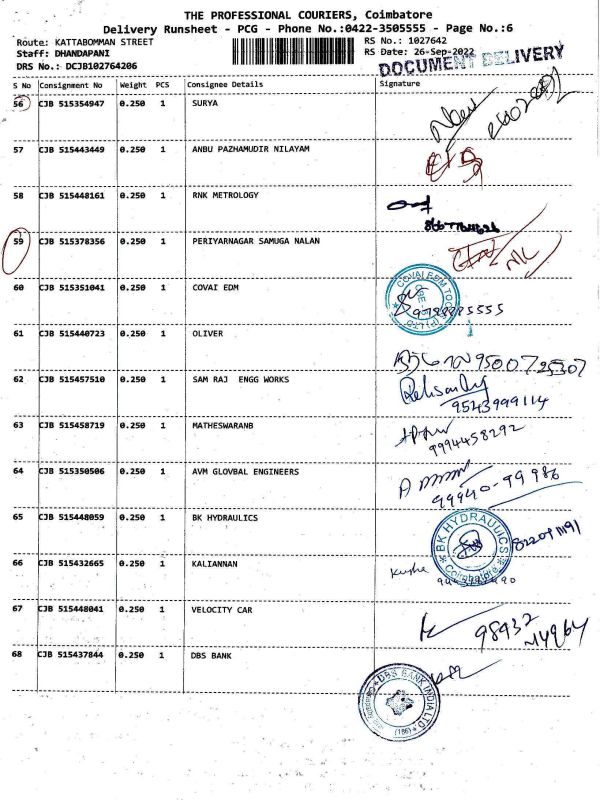 THE PROFESSIONAL COURIERS, Coimbatore
Delivery Runsheet - PCG - Phone No.:0422-3505555 - Page No.:6
Route: KATTABOMMAN STREET RS No.: 1027642
Staff: DHANDAPANI RS Date: 26-Sep-2022
DRS No.: DCJB102764206 DOCUMENT DELIVERY
S No Consignment No Weight PCS Consignee Details Signature
56 CJB 515354947 0.250 1 SURYA
57 CJB 515443449 0.250 1 ANBU PAZHAMUDIR NILAYAM
58 CJB 515448161 0.250 1 RNK METROLOGY
59 CJB 515378356 0.250 1 PERIYARNAGAR SAMUGA NALAN
60 CJB 515351041 0.250 1 COVAI EDM
61 CJB 515440723 0.250 1 OLIVER
9500725307
62 CJB 515457510 0.250 1 SAM RAJ ENGG WORKS
9543999114
63 CJB 515458719 0.250 1 MATHESWARANB
9994458292
64 CJB 515350506 0.250 1 AVM GLOVBAL ENGINEERS
99940-99986
65 CJB 515448059 0.250 1 BK HYDRAULICS
BK HYDRAULICS
Coimbatore
66 CJB 515432665 0.250 1 KALIANNAN
67 CJB 515448041 0.250 1 VELOCITY CAR
98932
68 CJB 515437844 0.250 1 DBS BANK
DBS BANK INDIA LTD
(186)